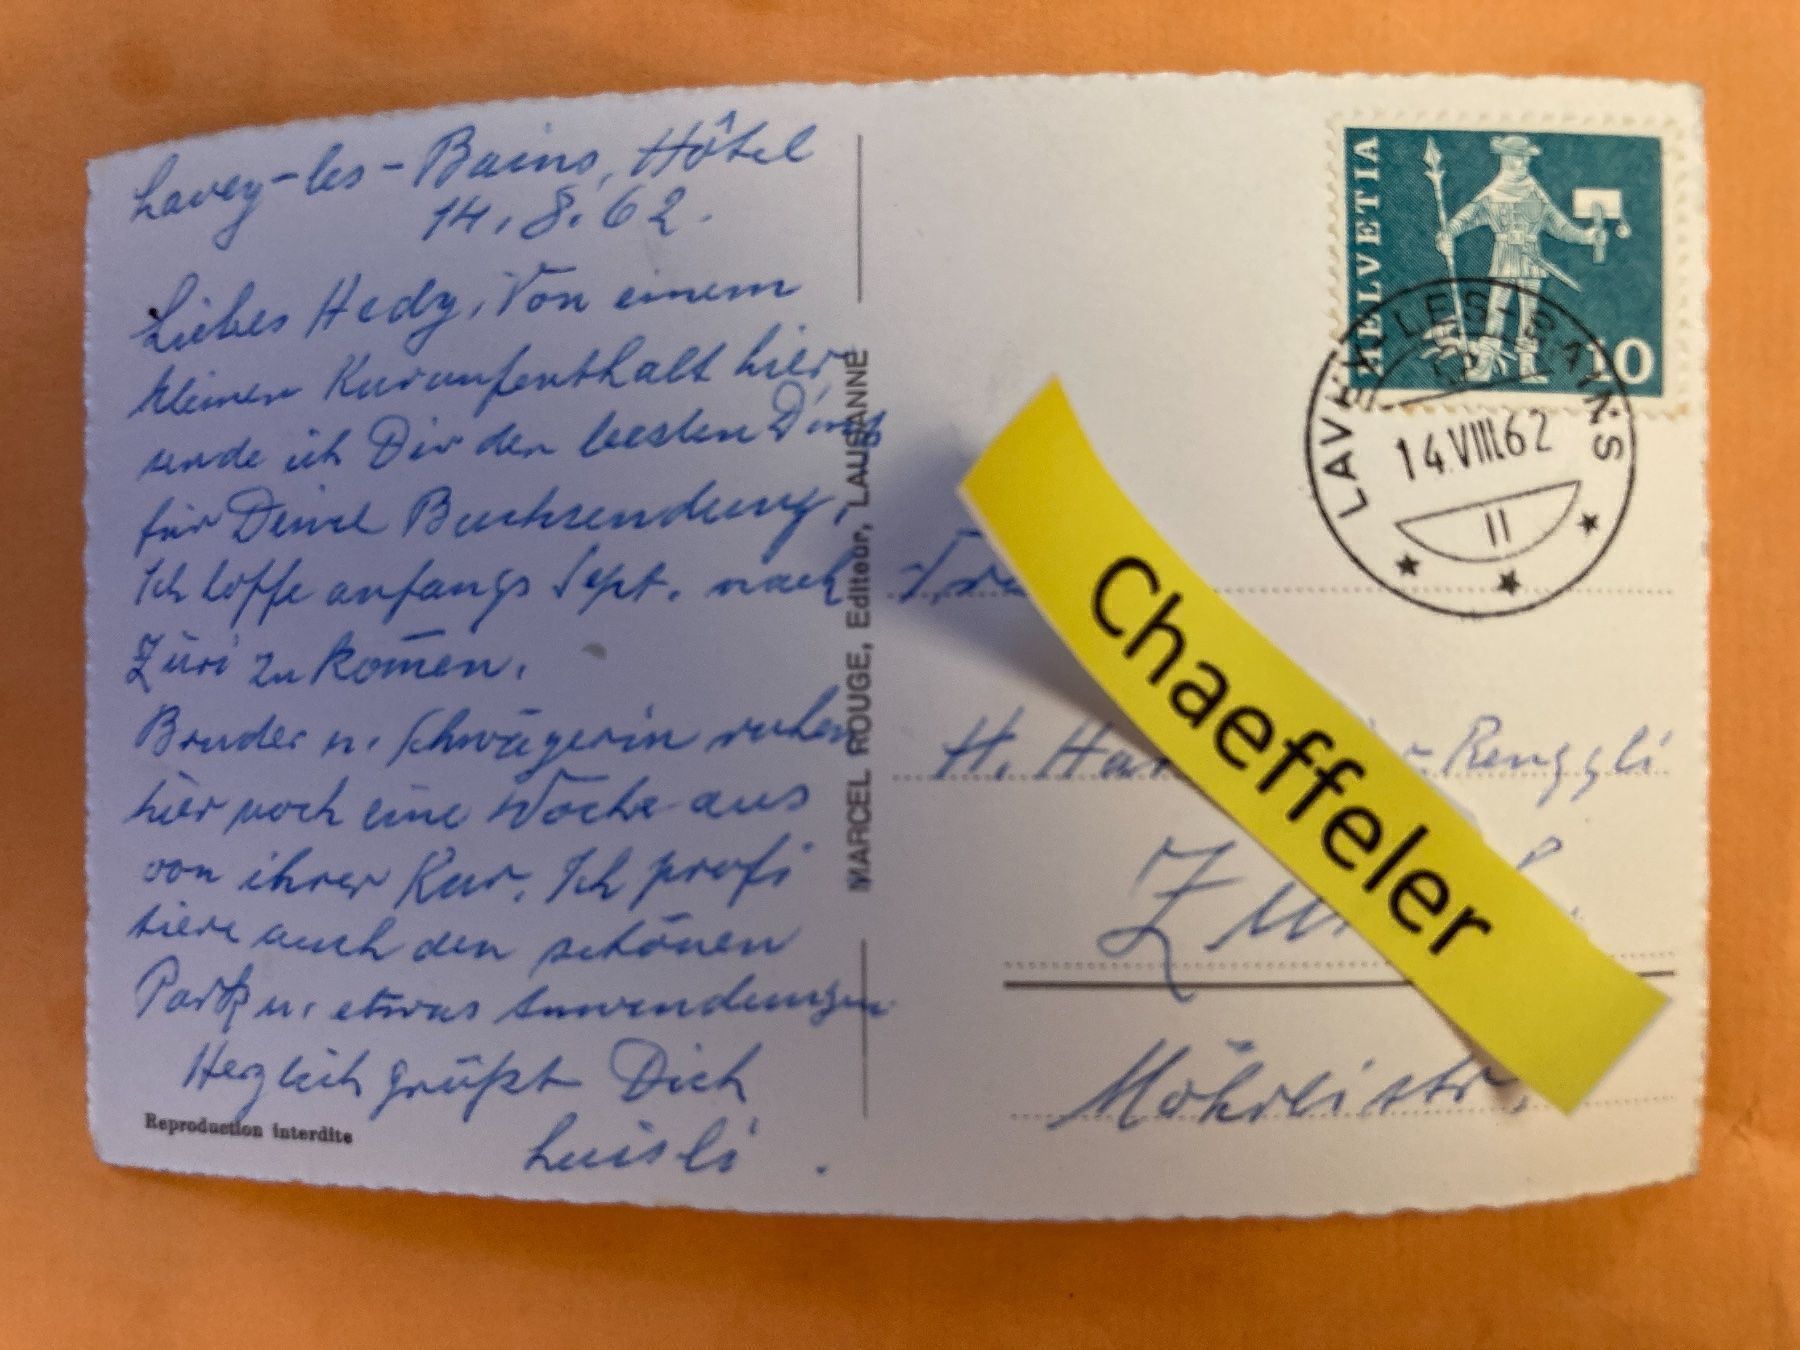 Lavey-les-Bains, Hôtel
14. 8. 62.
Liebes Hedy, Von einem
kleinen Kuraufenthalt hier
sende ich Dir den besten Dank
für Deine Buchsendung,
Ich hoffe anfangs Sept. nach
Züri zu kom̄en.
Bruder u. Schwägerin ruhen
hier noch eine Woche aus
von ihrer Kur. Ich profi
tiere auch den schönen
Park u. etwas Anwendungen
Herzlich grüßt Dich
Luisli.
Reproduction interdite
MARCEL ROUGE, Editeur, LAUSANNE
HELVETIA
10
LAVEY-LES-BAINS
14.VIII.62
11
H. -Renggli
Möhrlistr.
Chaeffeler